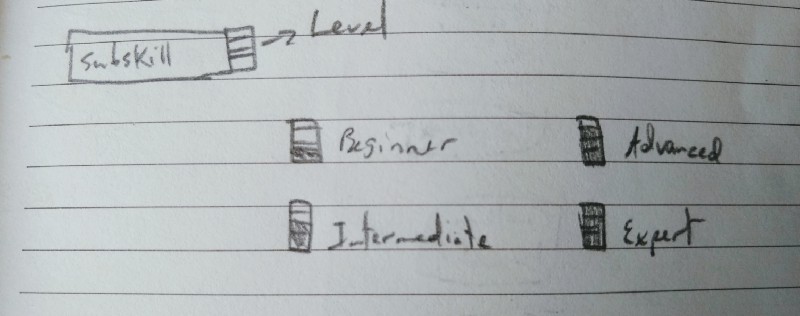 Level
Subskill
Beginner
Advanced
Intermediate
Expert